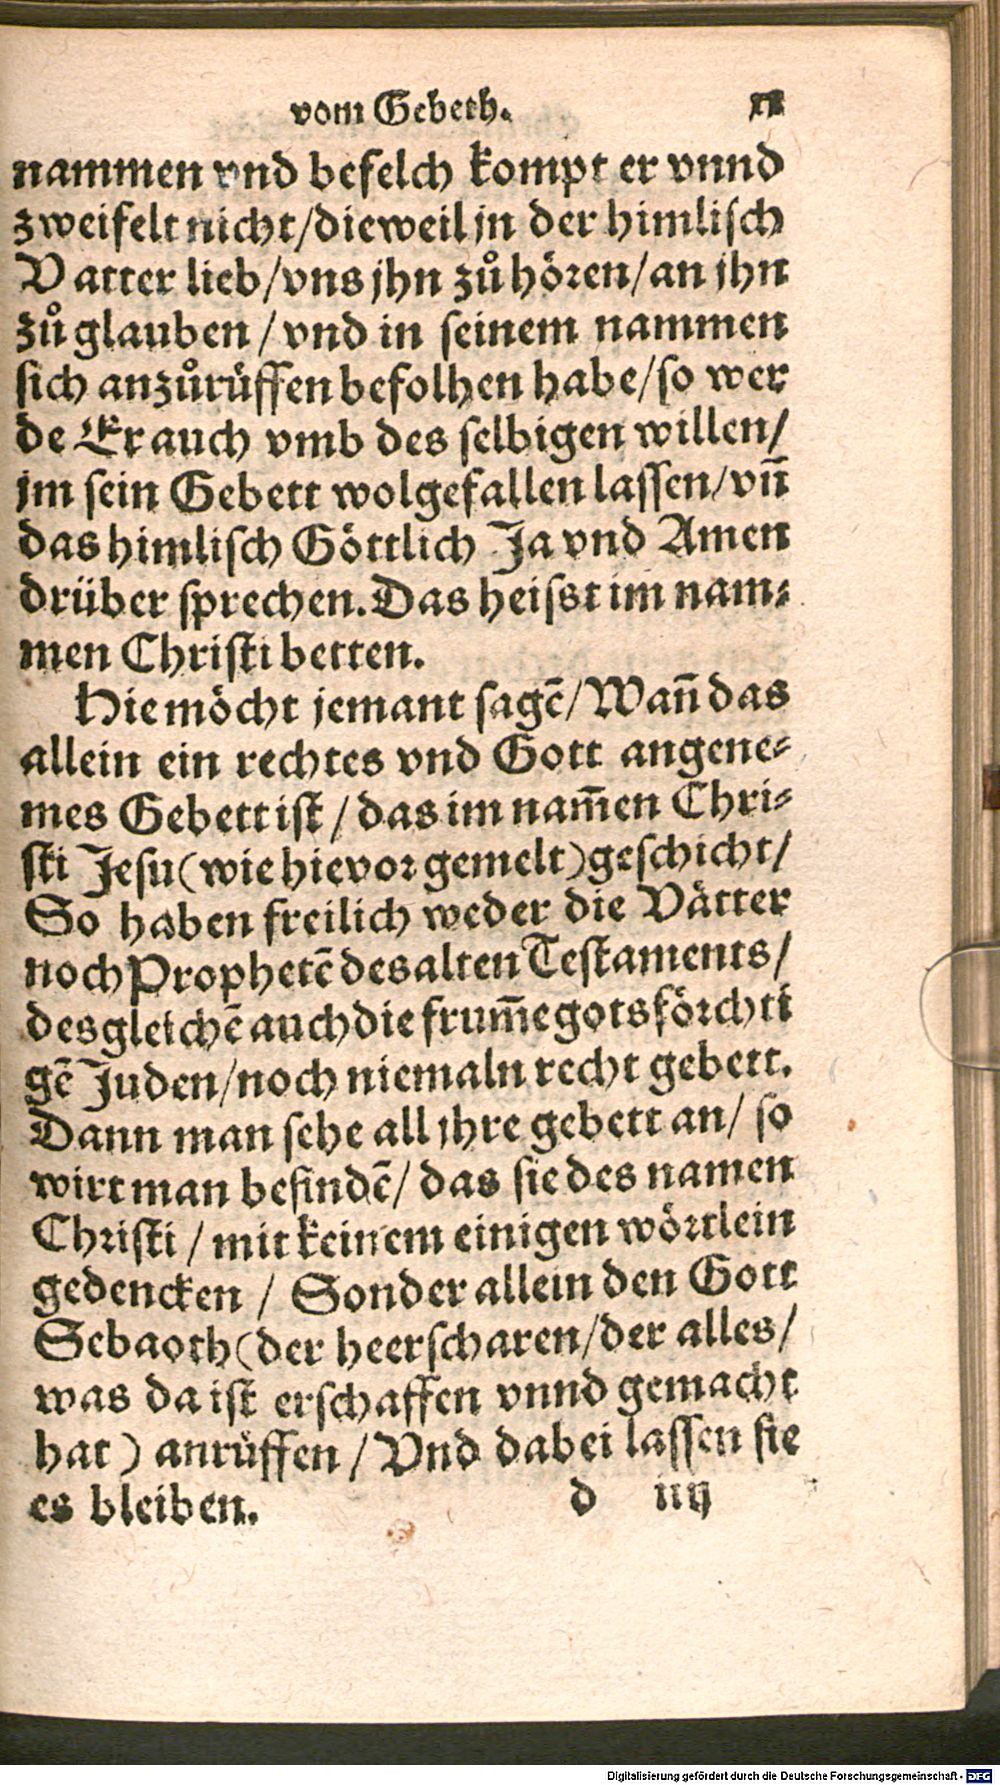 vom Gebeth.
nammen vnd befelch kompt er vnnd
zweifelt nicht/dieweil jn der himlisch
Vatter lieb/vns jhn zuͦ hören/an jhn
zuͦ glauben / vnd in seinem nammen
sich anzuͦrüffen befolhen habe/so wer
de Er auch vmb des selbigen willen/
jm sein Gebett wolgefallen lassen/vñ
das himlisch Göttlich Ja vnd Amen
drüber sprechen. Das heisst im nam⸗
men Christi betten.
Hie möcht jemant sagẽ/Wañ das
allein ein rechtes vnd Gott angene⸗
mes Gebett ist / das im nam̃en Chri⸗
sti Jesu (wie hievor gemelt) geschicht/
So haben freilich weder die Vätter
noch Prophetẽ des alten Testaments/
desgleichẽ auch die frum̃e gotsförchti
gẽ Juden/noch niemaln recht gebett.
Dann man sehe all ihre gebett an/ so
wirt man befindẽ/ das sie des namen
Christi / mit keinem einigen wörtlein
gedencken / Sonder allein den Gott
Sebaoth (der heerscharen/der alles/
was da ist erschaffen vnnd gemacht
hat) anrüffen / Vnd dabei lassen sie
es bleiben.
d iiij
Digitalisierung gefördert durch die Deutsche Forschungsgemeinschaft - DFG